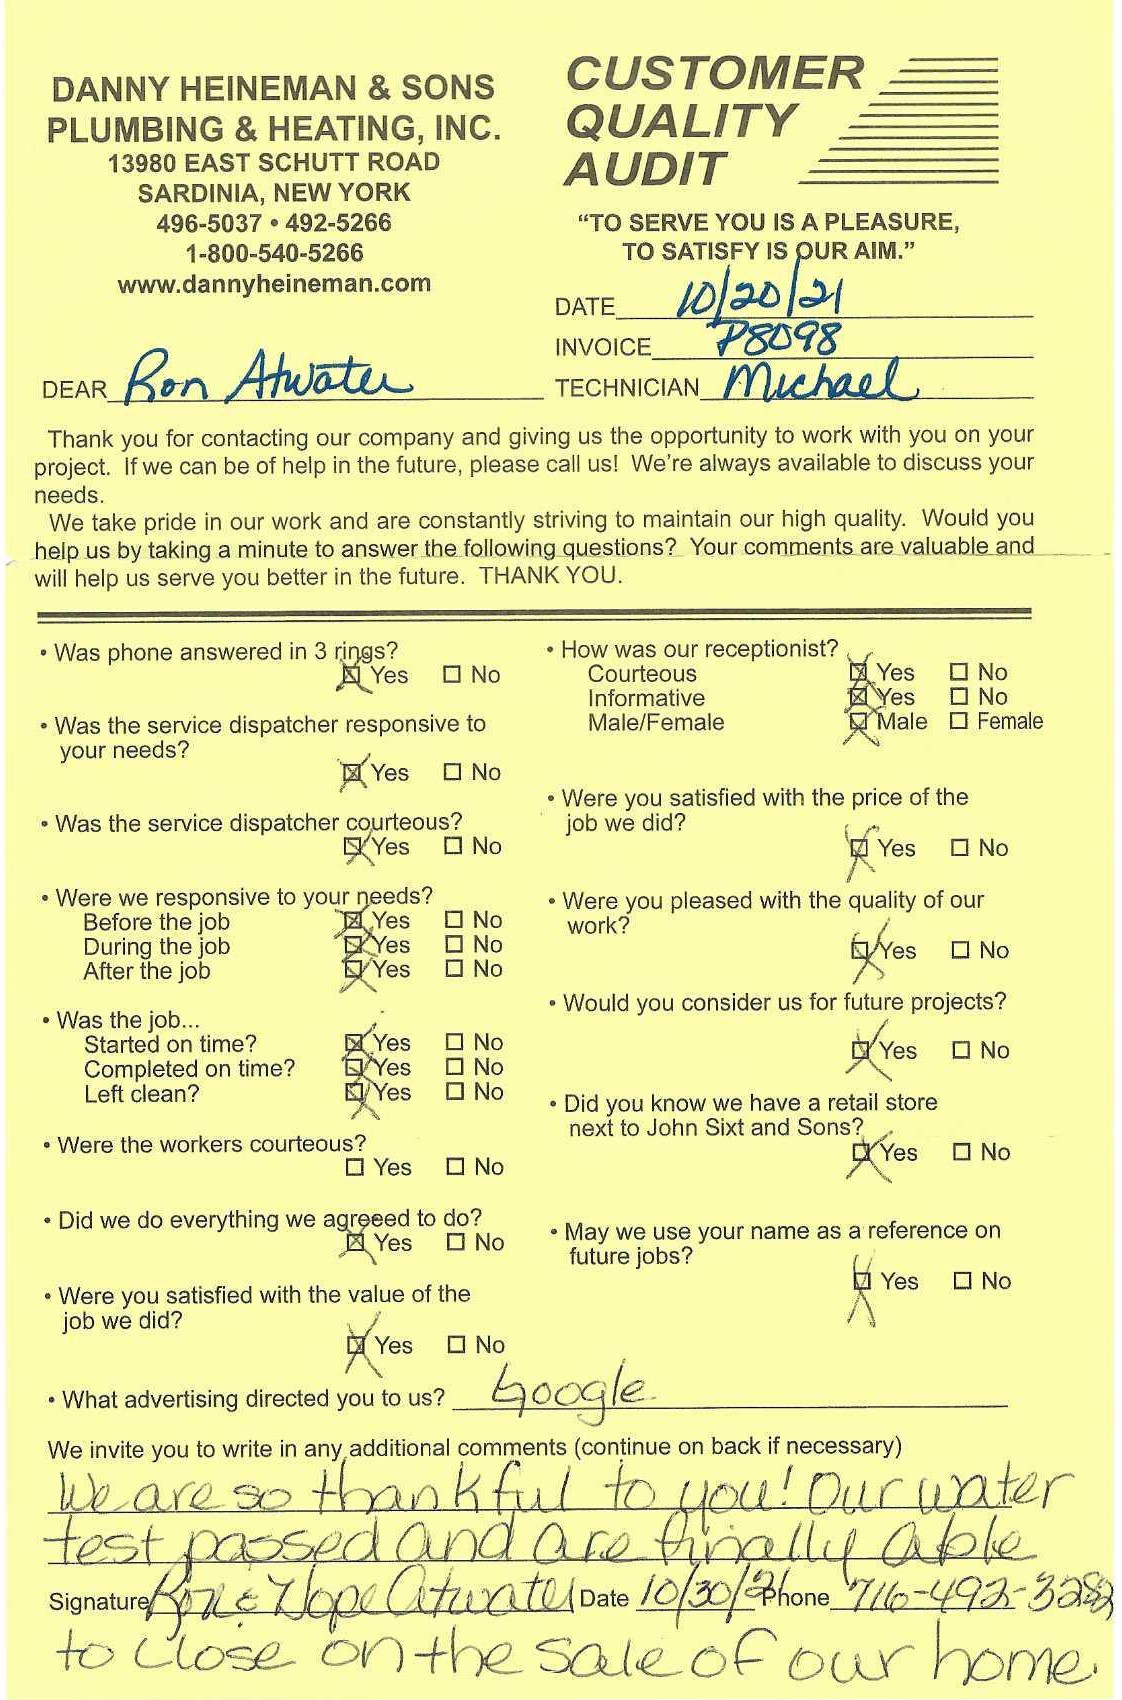 DANNY HEINEMAN & SONS
PLUMBING & HEATING, INC.
13980 EAST SCHUTT ROAD
SARDINIA, NEW YORK
496-5037 • 492-5266
1-800-540-5266
www.dannyheineman.com
CUSTOMER
QUALITY
AUDIT
“TO SERVE YOU IS A PLEASURE,
TO SATISFY IS OUR AIM.”
DATE 10/20/21
INVOICE P8098
DEAR Ron Atwater
TECHNICIAN Michael
Thank you for contacting our company and giving us the opportunity to work with you on your
project. If we can be of help in the future, please call us! We're always available to discuss your
needs.
We take pride in our work and are constantly striving to maintain our high quality. Would you
help us by taking a minute to answer the following questions? Your comments are valuable and
will help us serve you better in the future. THANK YOU.
• Was phone answered in 3 rings?
☒ Yes ☐ No
• Was the service dispatcher responsive to
your needs?
☒ Yes ☐ No
• Was the service dispatcher courteous?
☒ Yes ☐ No
• Were we responsive to your needs?
Before the job ☒ Yes ☐ No
During the job ☒ Yes ☐ No
After the job ☒ Yes ☐ No
• Was the job...
Started on time? ☒ Yes ☐ No
Completed on time? ☒ Yes ☐ No
Left clean? ☒ Yes ☐ No
• Were the workers courteous?
☐ Yes ☐ No
• Did we do everything we agreeed to do?
☒ Yes ☐ No
• Were you satisfied with the value of the
job we did?
☒ Yes ☐ No
• How was our receptionist?
Courteous ☒ Yes ☐ No
Informative ☒ Yes ☐ No
Male/Female ☒ Male ☐ Female
• Were you satisfied with the price of the
job we did?
☒ Yes ☐ No
• Were you pleased with the quality of our
work?
☒ Yes ☐ No
• Would you consider us for future projects?
☒ Yes ☐ No
• Did you know we have a retail store
next to John Sixt and Sons?
☒ Yes ☐ No
• May we use your name as a reference on
future jobs?
☒ Yes ☐ No
• What advertising directed you to us? Google
We invite you to write in any additional comments (continue on back if necessary)
We are so thankful to you! Our water
test passed and are finally able
Signature Ron & Hope Atwater Date 10/30/21 Phone 716-492-3282
to close on the sale of our home.